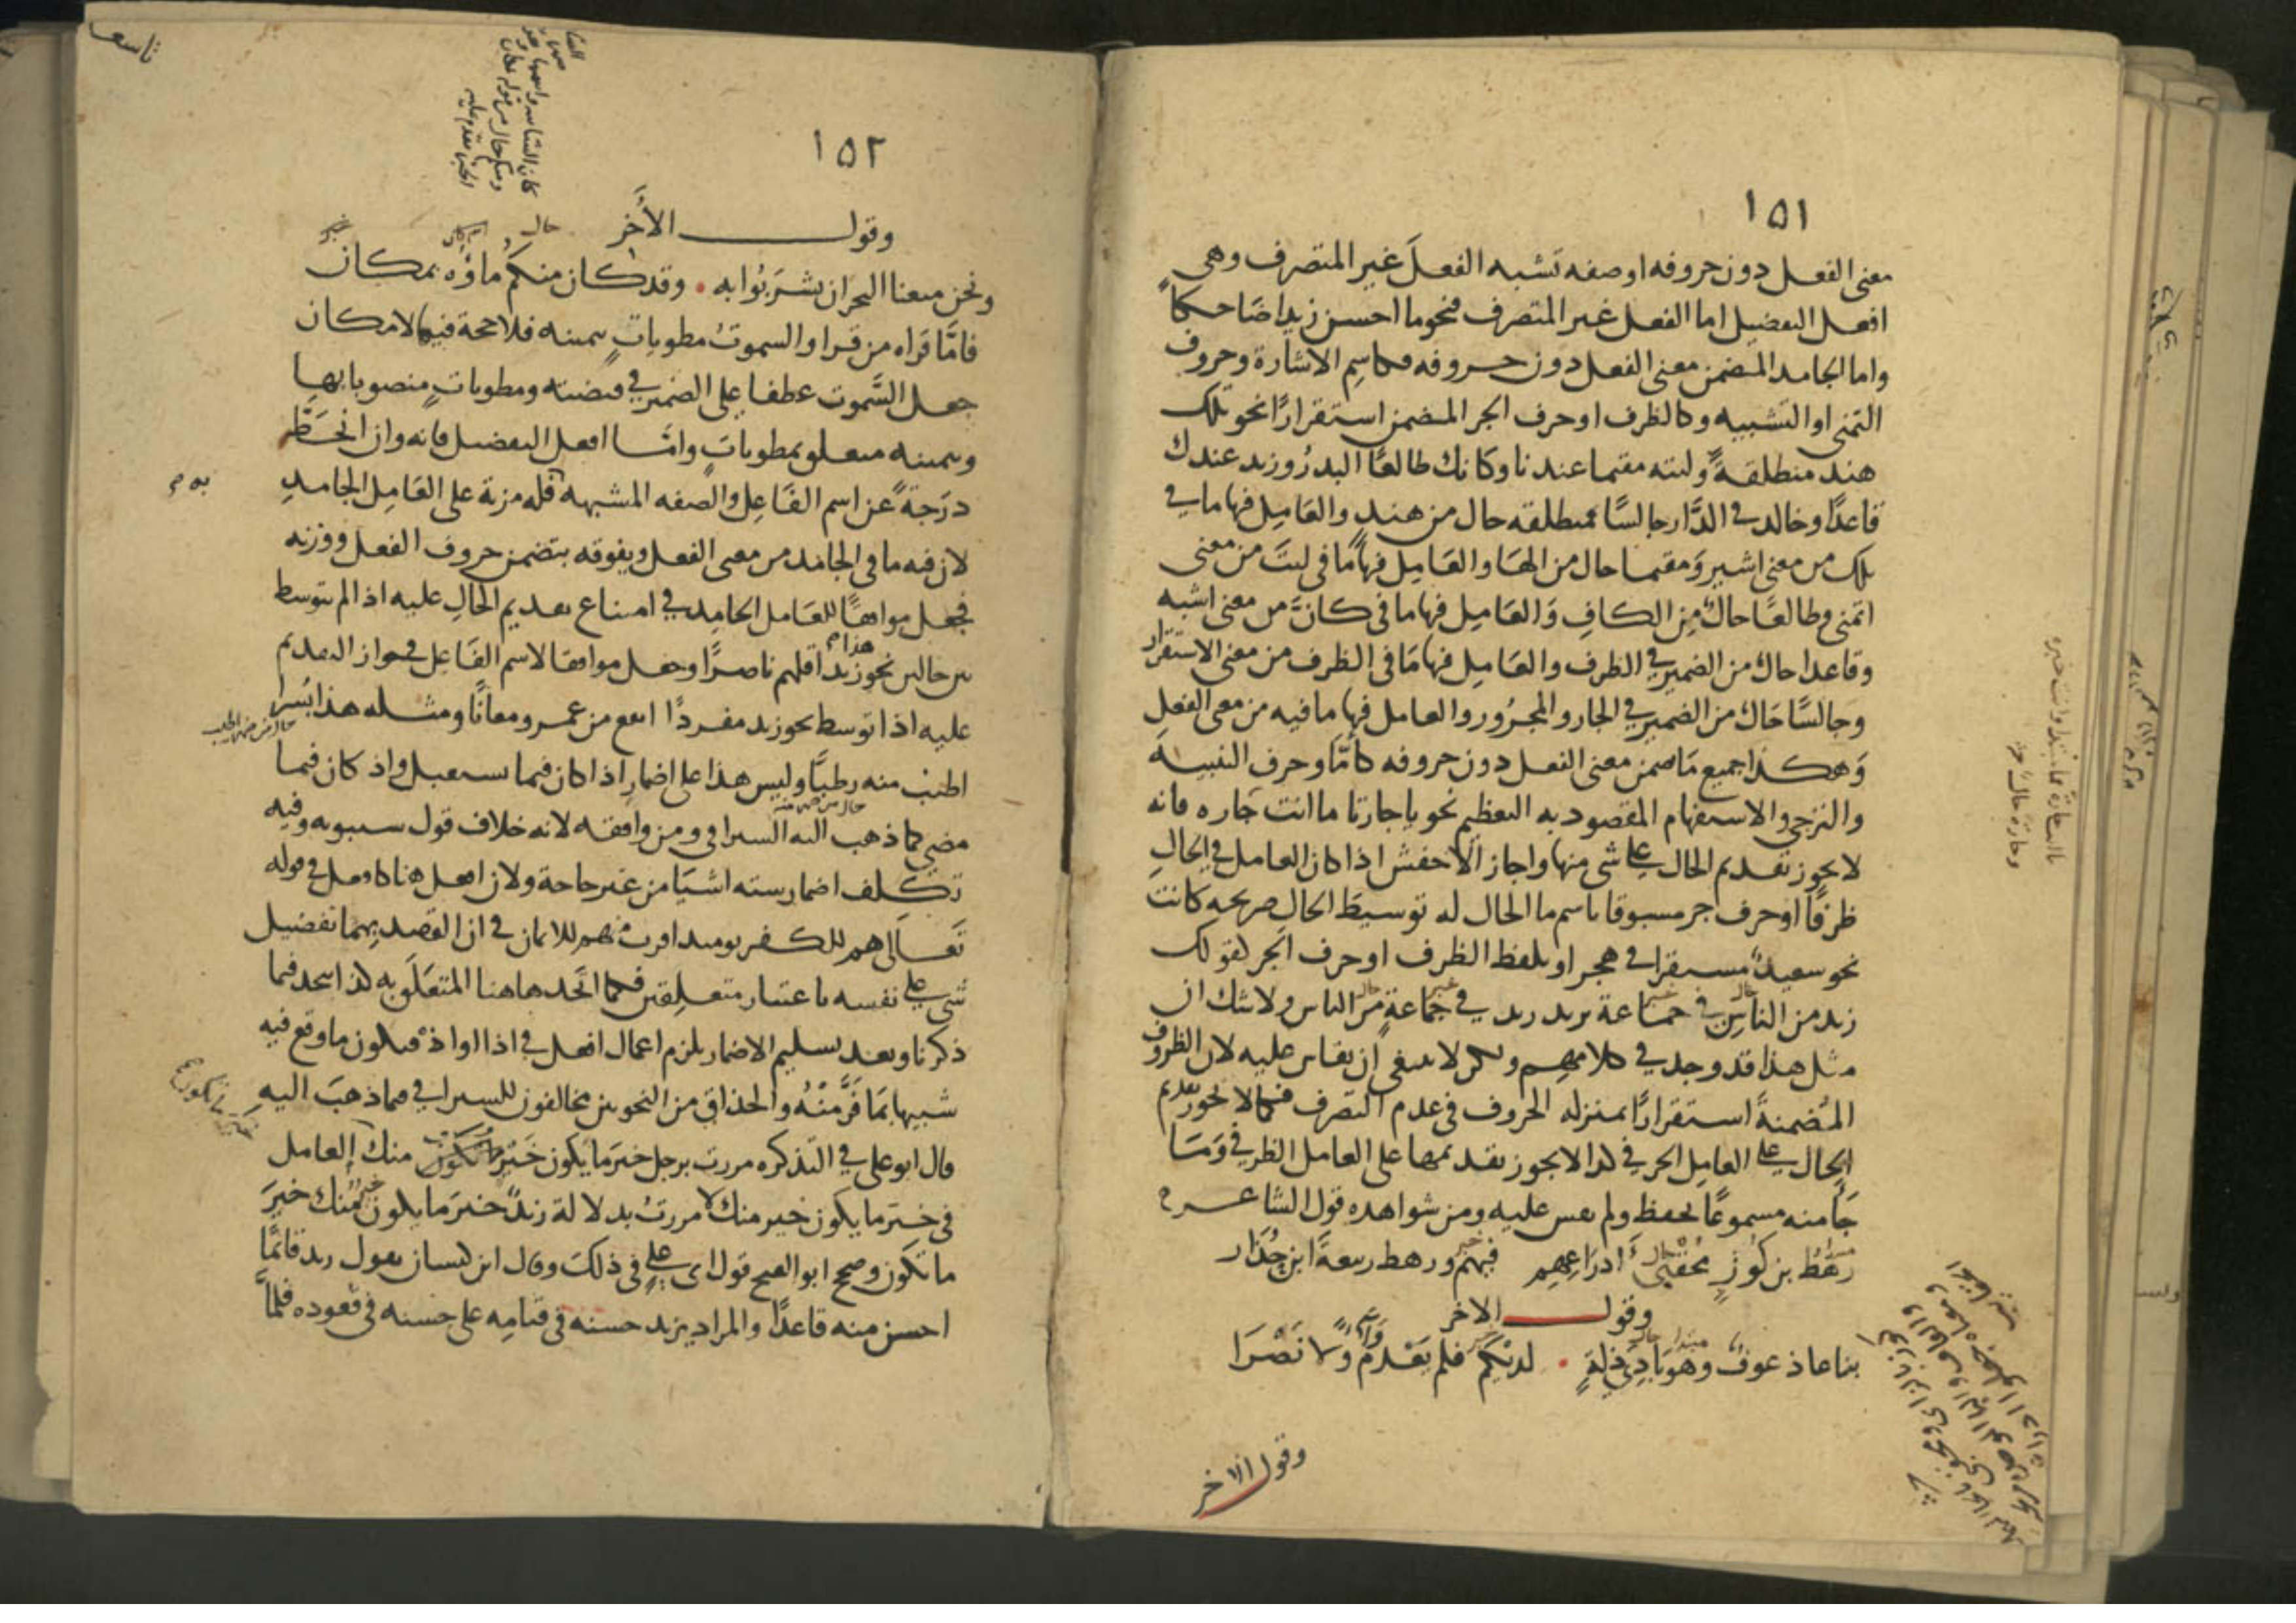 ١٥١
معنى الفعل دون حروفه او صفه تشبه الفعلَ غير المتصرف وهى
افعل التفضيل اما الفعل غير المتصرف فنحو ما احسن زيدا ضاحكا
واما الجامد المضمن معنى الفعل دون حروفه فكاسمِ الاشارة وحروف
التمنى او التشبيه وكالظرف او حرف الجر المضمن استقرارًا نحو تلك
هند منطلقةً وليته مقيما عندنا وكانك طالعًا البدرُ وزيد عندك
قاعدًا وخالد في الدَّار جالسًا فمنطلقه حال من هندٍ والعَامِل فيها ما في
تلك من معنى اشير وَمقيما حال من الهَا والعَامِل فيها ما في ليتَ من معنى
اتمنى وطالعًا حال مِن الكافِ وَالعَامِل فيها ما فى كانَّ من معنى اشبه
وقاعدا حال من الضمير في الظرف والعَامِل فيها مَا فى الظرف من معنى الاستقرار
وجالسًا حَال من الضمير في الجار والمجرُور والعامل فيها ما فيه من معنى الفعلِ
وَهكذا جميع مَا ضمن معنى الفعل دون حروفه كامَّا وحرف التنبيه
والترجى والاستفهام المقصود به التعظيم نحو يا جارتا ما انت جَاره فانه
لا يجوز تقديم الحال على شى منها واجاز الاخفش اذا كان العامل في الحالِ
ظرفًا او حرف جر مسبوقا باسم ما الحال له توسيطَ الحال صريحه كانت
نحو سعيد مستقرا في هجر او بلفظ الظرف او حرف الجر كقولك
زيد من الناسِ في جمَاعة تريد زيد في جمَاعةٍ من الناس ولا شك ان
مثل هذا قد وجد في كلامهم ولكن لا ينبغى ان يقاس عليه لان الظروف
المُضمنةَ استقرارًا بمنزله الحروف فى عدم التصرف فكما لا يجوز تقديم
الحال على العامل الحرفي كذا لا يجوز تقديمها على العامل الظرفي وَمَا
جَا منه مسموعًا يحفظ ولم يقس عليه ومن شواهده قول الشاعر
رهْطُ بن كوزٍ مُحْقِبى ادرَاعِهِم فيهم ورهط ربيعةَ ابن حُذَار
وقول الاخر
بنا عاذ عوف وهو بَادِى ذلةٍ • لديكم فلم يَعْدم وَلا نَصْرَا
وقول الاخر
١٥٢
وقول الأخَر
ونحن منعنا البحر ان يشرَبُوا به • وقد كان منكم ماؤه بمكان
فامَّا قراه من قرا والسموتُ مطوياتٍ بيمينه فلا حجة فيها لامكان
جعل السَّموت عطفا على الضمير في قبضته ومطوياتٍ منصوبا بها
وبيمينه متعلق بمطوياتٍ وامَّا افعل التفضيل فانه وان انحَطَّ
درَجةً عن اسم الفَاعِل والصفه المشبهه فله مزية على العَامِل الجامدِ
لان فيه ما فى الجامد من معنى الفعل ويفوقه بتضمن حروف الفعل ووزنه
فجعل موافقًا للعَامل الجامِد في امتناع تقديم الحالِ عليه اذا لم يتوسط
بين حالين نحو زيد اقلهم ناصرًا وجعل موافقا لاسم الفَاعِل فى جواز التقديم
عليه اذا توسط نحو زيد مفردًا انفع من عمرو معانًا ومثله هذا بُسرا
اطيب منه رطبًا وليس هذا على اضمارِ اذا كان فيما يستقبل واذ كان فيما
مضى كما ذهب اليه السيرافى ومن وافقه لانه خلاف قول سيبويه وفيه
تكلف اضمار سته اشيَا من غير حاجة ولان افعل هنا كافعل في قوله
تَعالَى هم للكفر يومئذ اقرب منهم للايمان فى ان القصد بهما تفضيل
شى على نفسه باعتبار متعلقين فكما اتحد هاهنا المتعَلَق به كذا اتحد فيما
ذكرنا وبعد تسليم الاضمار يلزم اعمال افعل في اذا او اذ فيكون ما وقع فيه
شبيها بمَا فَرَّ مِنْهُ والحذاق من النحويين مخالفون للسيرافي فيما ذهبَ اليهِ
قال ابو على في التذكره مررت برجل خير ما يكون خَير ما تكون منك العامل
فى خير ما يكون خير منك لا مررتُ بدلالة زيد خير ما يكون خير منك خيرَ
ما تكون وصحح ابو الفتح قول ابى على فى ذلك وقال ابن كيسان تقول زيد قائمًا
احسن منه قاعدًا والمراد يزيد حسنه فى قيامه على حسنه فى قعوده فلمَّا